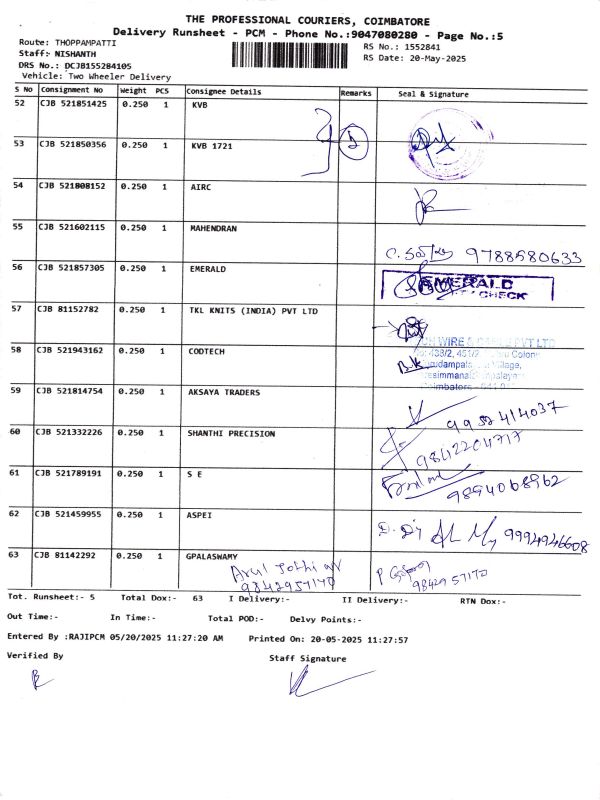 THE PROFESSIONAL COURIERS, COIMBATORE
Delivery Runsheet - PCM - Phone No.:9047080280 - Page No.:5
Route: THOPPAMPATTI
Staff:- NISHANTH
DRS No.: DCJB155284105
Vehicle: Two Wheeler Delivery
RS No.: 1552841
RS Date: 20-May-2025
S No Consignment No Weight PCS Consignee Details Remarks Seal & Signature
52 CJB 521851425 0.250 1 KVB
53 CJB 521850356 0.250 1 KVB 1721
54 CJB 521808152 0.250 1 AIRC
55 CJB 521602115 0.250 1 MAHENDRAN 9788580633
56 CJB 521857305 0.250 1 EMERALD EMERALD
CHECK
57 CJB 81152782 0.250 1 TKL KNITS (INDIA) PVT LTD
58 CJB 521943162 0.250 1 CODTECH
59 CJB 521814754 0.250 1 AKSAYA TRADERS 9952414037
60 CJB 521332226 0.250 1 SHANTHI PRECISION 9842204717
61 CJB 521789191 0.250 1 S E 9894068962
62 CJB 521459955 0.250 1 ASPEI 9994946608
63 CJB 81142292 0.250 1 GPALASWAMY
9842957170 9842957170
Tot. Runsheet:- 5 Total Dox:- 63 I Delivery:- II Delivery:- RTN Dox:-
Out Time:- In Time:- Total POD:- Delvy Points:-
Entered By :RAJIPCM 05/20/2025 11:27:20 AM Printed On: 20-05-2025 11:27:57
Verified By Staff Signature